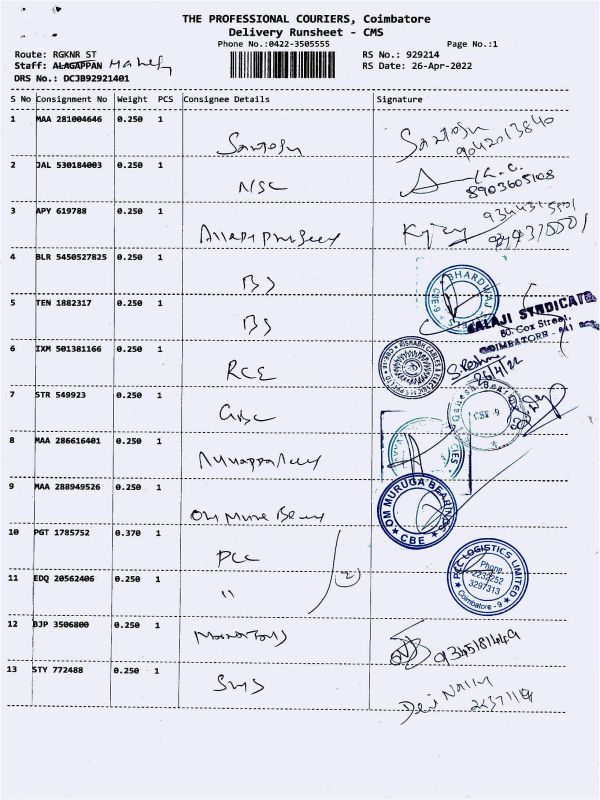 THE PROFESSIONAL COURIERS, Coimbatore
Delivery Runsheet - CMS
Phone No.:0422-3505555
Page No.:1
Route: RGKNR ST
RS No.: 929214
Staff: ALAGAPPAN Mahesh
RS Date: 26-Apr-2022
DRS No.: DCJB92921401
S No Consignment No Weight PCS Consignee Details Signature
1 MAA 281004646 0.250 1 Santosh Santosh
9042013840
2 JAL 530184003 0.250 1 NSC
8903605108
3 APY 619788 0.250 1
4 BLR 5450527825 0.250 1 BS
BHARDWAJ
CBE-9
5 TEN 1882317 0.250 1 BS
BALAJI SYNDICATE
60, Cox Street,
COIMBATORE - 641
6 IXM 501381166 0.250 1 RCE
RISHABH CABLES &
26/4/22
7 STR 549923 0.250 1 GBC
CBE 9
8 MAA 286616401 0.250 1
9 MAA 288949526 0.250 1 Om Muru Bearing
OM MURUGA BEARINGS
CBE
10 PGT 1785752 0.370 1 PCC
2
PCC LOGISTICS LIMITED
Phone
2232252
3297313
Coimbatore - 9
11 EDQ 20562406 0.250 1 "
12 BJP 3506800 0.250 1
9345181449
13 STY 772488 0.250 1 SMS
Devi